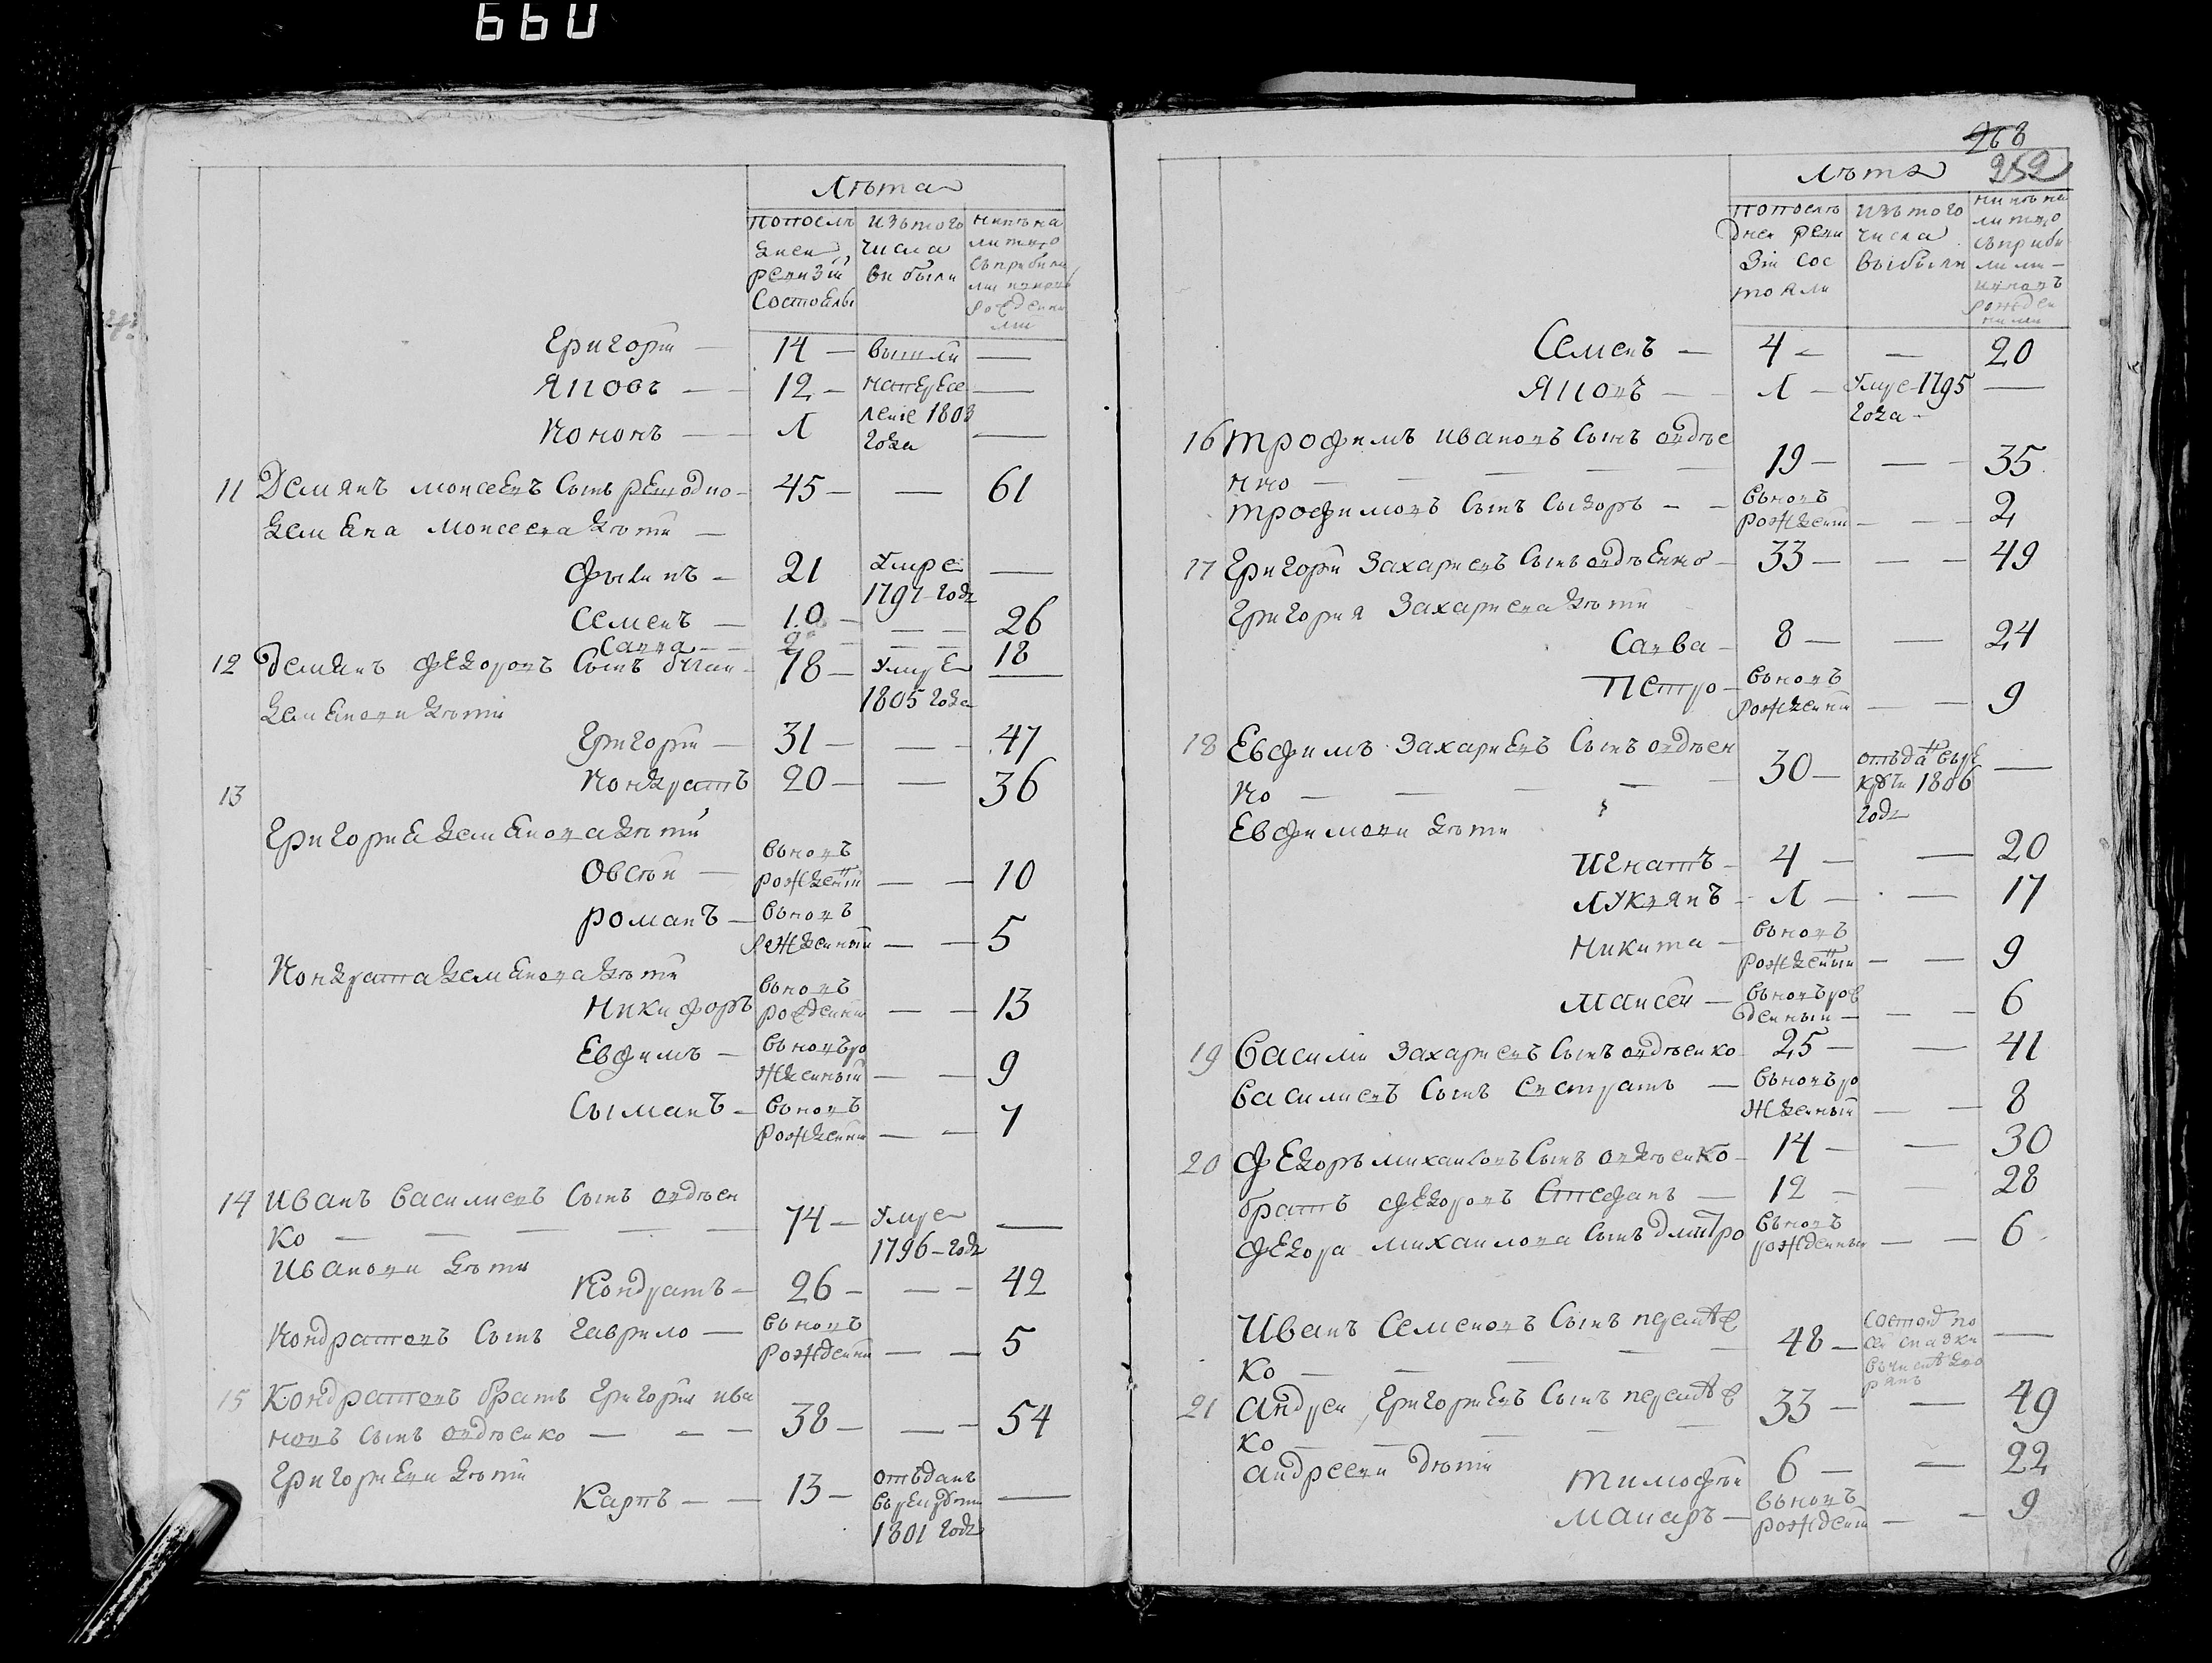 660
Лѣта
попослѣ
дней
ревизіи
Состоѣлы
изътого
числа
выбыли
нинѣна
лицо
Григорій — 14 — вышли —
Яковъ — 12 — напересе —
ление 1803
Кононъ — 1 года —
11 Демянъ моисеевъ сынъ 45 — — 61
демена моисеева дѣти —
Филипъ — 21 умре —
1797 года
Семенъ — 10 — — 26
Савва — 2 — — 18
12 Демянъ федоровъ сынъ 78 — умре —
1805 года
деменови дѣти
Григорій — 31 — — 47
13 Кондратъ 20 — — 36
Григорие деменова дѣти
Овсѣй — вьновъ рожденій — — 10
романъ — вьновъ рожденный — — 5
Кондрата деменова дѣти
Никифоръ вьновъ рожденни — — 13
Евфимъ — вьновъро жденный — — 9
Сыманъ — вьновъ рожденни — — 7
14 Иванъ василиевъ сынъ овдѣен
ко — — — — 74 — умре —
1796 — года
Иванови дѣти
Кондратъ — 26 — — 42
Кондратовъ сынъ гаврило — вьновъ рождении — — 5
15 Кондратовъ братъ григорій ива
новъ сынъ овдѣенко — — 38 — — 54
Григориеви дѣти
Карпъ — 13 — отъданъ —
1801 года
268
252
Лѣта
попослѣ
дней реви
зіи сос
тояли
изътого
числа
выбыли
нинѣна
лицо
съприби
лими
ивновъ
рожден
ними
Семенъ — 4 — — 20
Яковъ — 1 — умре 1795 —
года —
16 трофимъ ивановъ сынъ овдѣе
нко — — — 19 — — 35
трофимовъ сынъ сыдоръ — вьновъ рожденій — — 2
17 Григорій захариевъ сынъ овдѣенко — 33 — — 49
Григория захариева дѣти
Савва — 8 — — 24
Петро — вьновъ рожденни — — 9
18 Евфимъ захариевъ сынъ овдѣен
ко — — — 30 — отъданъ вьре —
круты 1806
года
Евфимови дѣти
Игнатъ — 4 — — 20
Лукянъ — 1 — — 17
никита — вьновъ рожденный — — 9
Маисей — вьновъ рож денный — — 6
19 василій захариевъ сынъ овдѣенко 25 — — 41
василиевъ сынъ евстратъ — вьновъро жденный — — 8
20 федоръ михаиловъ сынъ овдѣенко — 14 — — 30
братъ федоровъ Стефанъ — 12 — — 28
федора михаилова сынъ дмитро вьновъ рожденный — — 6
Иванъ Семеновъ сынъ
ко — — — 48 — —
21 андрей григориевъ сынъ 33 — — 49
ко — — —
андреевы дѣти
тимофѣи 6 — — 22
макаръ — вьновъ рожденій — — 9